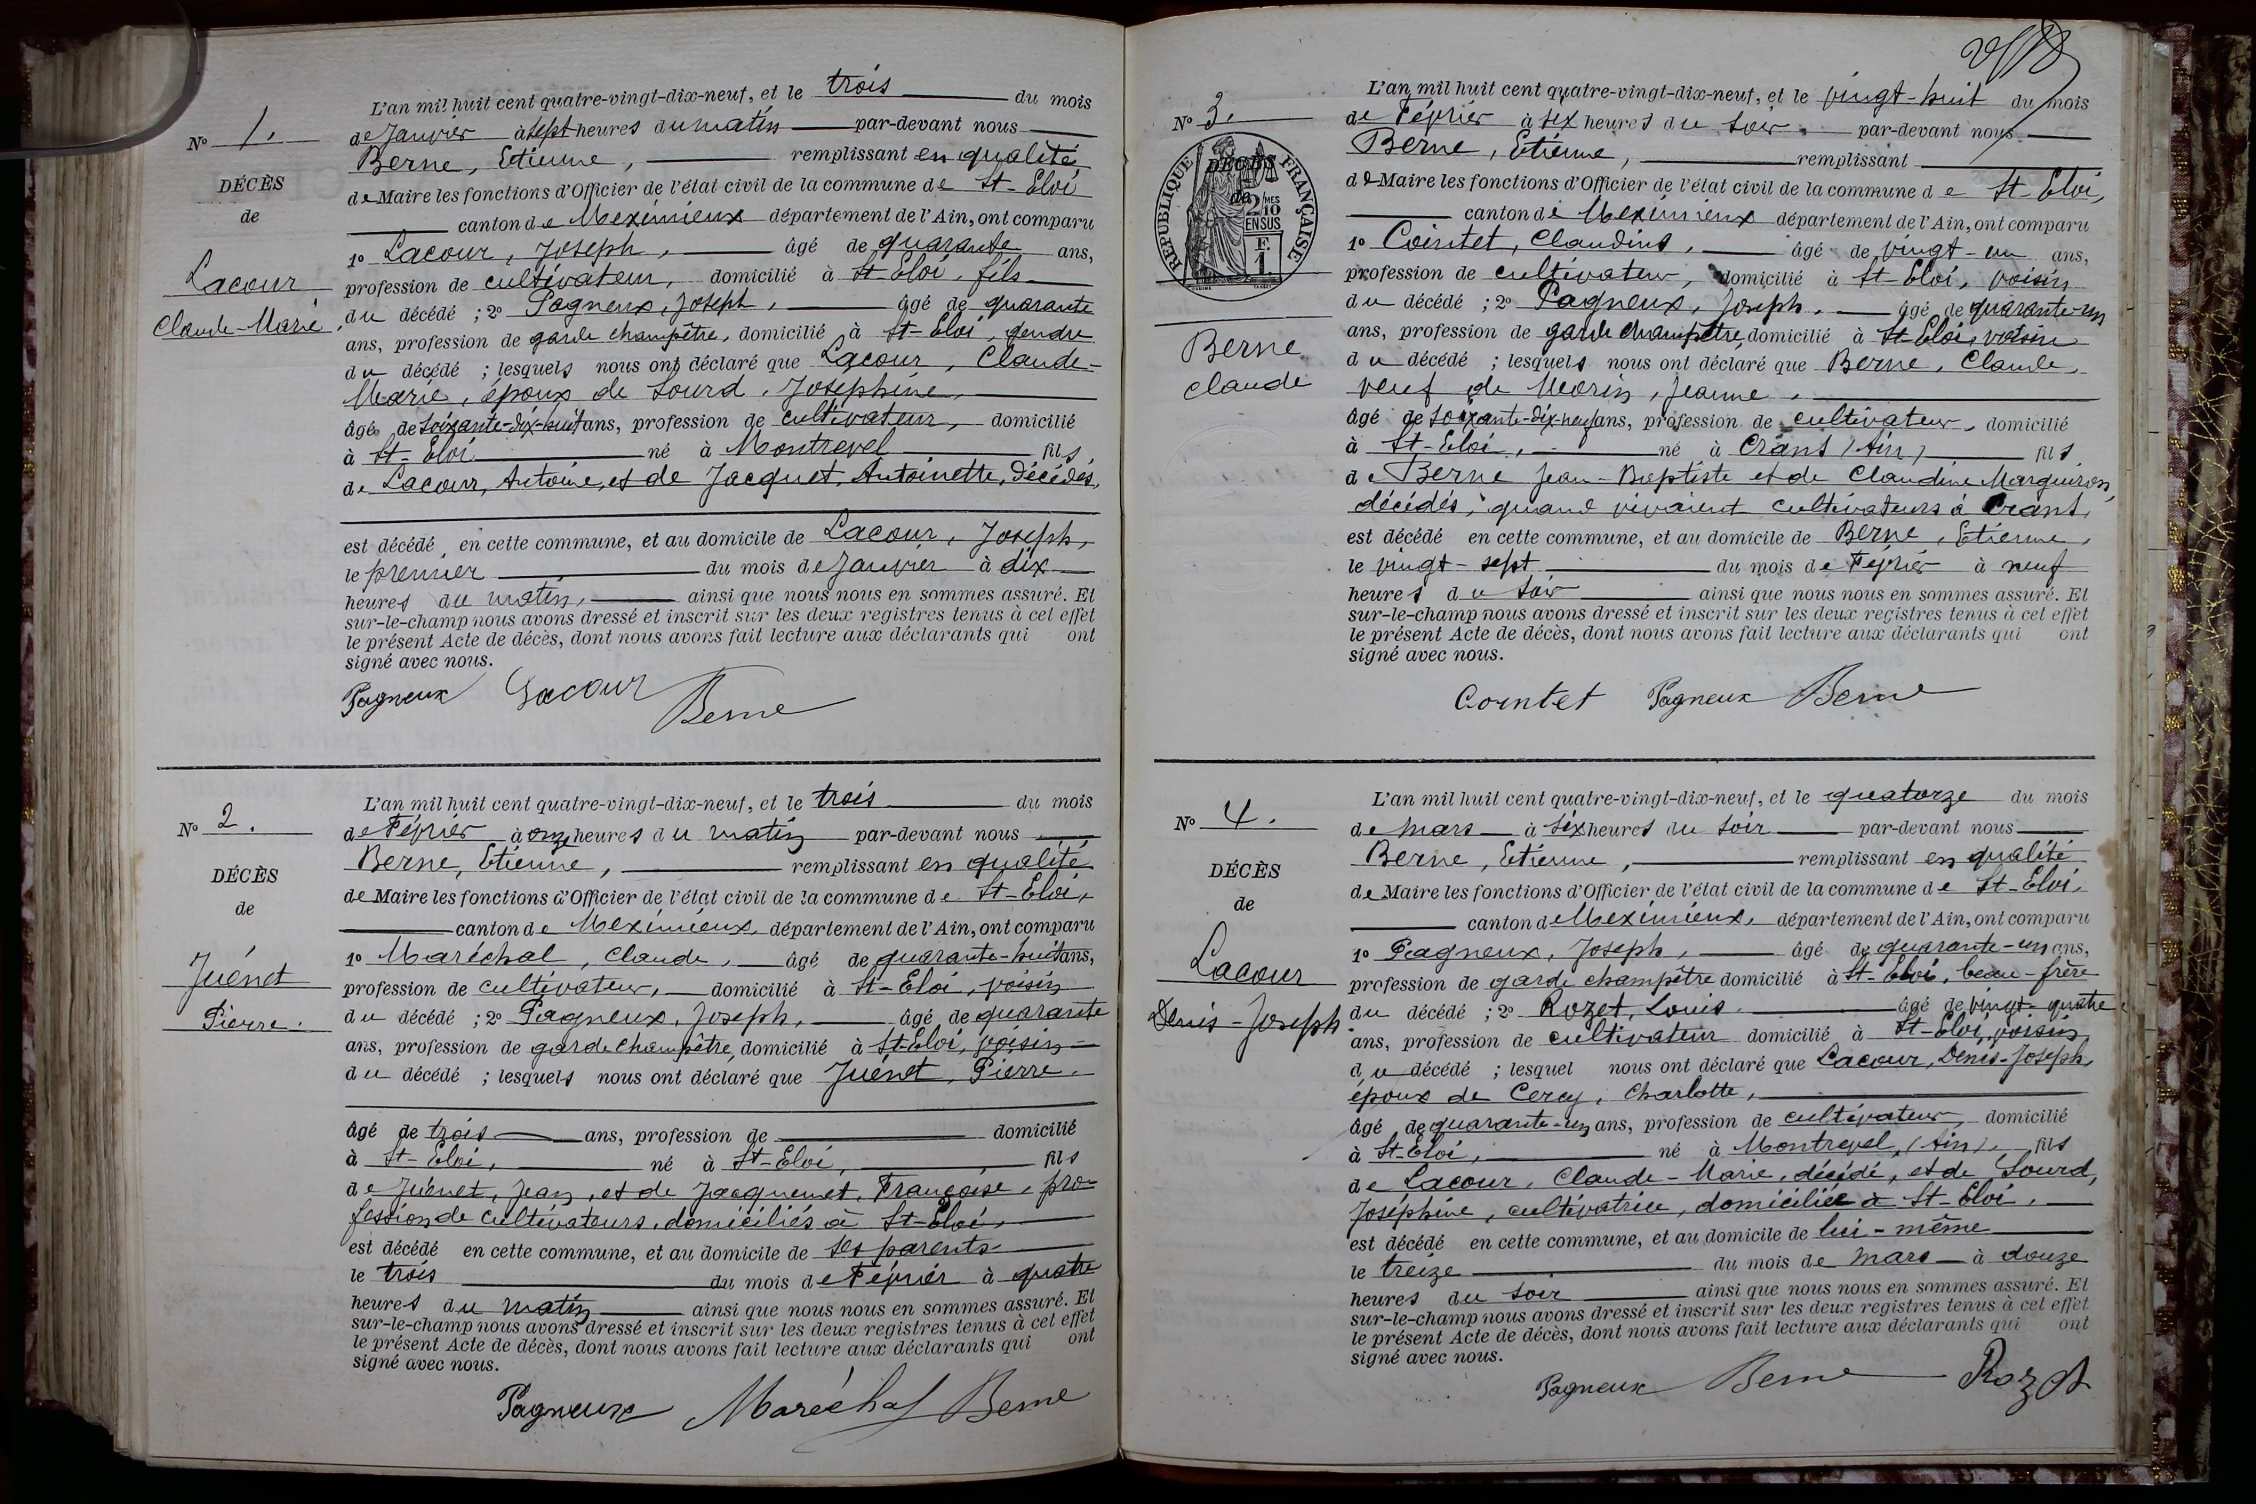 L'an mil huit cent quatre-vingt-dix-neuf, et le trois du mois
de Janvier à sept heures du matin par-devant nous
Berne, Etienne, remplissant en qualité
de Maire les fonctions d'Officier de l'état civil de la commune de St-Eloi
canton de Meximieux département de l'Ain, ont comparu
1º Lacour, Joseph, âgé de quarante ans,
profession de cultivateur, domicilié à St-Eloi, fils
du décédé ; 2º Pagneux, Joseph, âgé de quarante
ans, profession de garde champêtre, domicilié à St-Eloi, gendre
du décédé ; lesquels nous ont déclaré que Lacour, Claude-
Marie, époux de Sourd, Joséphine,
âgé de soixante-dix-huit ans, profession de cultivateur, domicilié
à St-Eloi né à Montrevel fils,
de Lacour, Antoine, et de Jacquet, Antoinette, décédés,
est décédé en cette commune, et au domicile de Lacour, Joseph,
le premier du mois de Janvier à dix
heures du matin, ainsi que nous nous en sommes assuré. Et
sur-le-champ nous avons dressé et inscrit sur les deux registres tenus à cet effet
le présent Acte de décès, dont nous avons fait lecture aux déclarants qui ont
signé avec nous.
Pagneux Lacour Berne
Nº 1.
DÉCÈS
de
Lacour
Claude-Marie
L'an mil huit cent quatre-vingt-dix-neuf, et le trois du mois
de Février à onze heures du matin par-devant nous
Berne, Etienne, remplissant en qualité
de Maire les fonctions d'Officier de l'état civil de la commune de St-Eloi,
canton de Meximieux, département de l'Ain, ont comparu
1º Maréchal, Claude, âgé de quarante-huit ans,
profession de cultivateur, domicilié à St-Eloi, voisin
du décédé ; 2º Pagneux, Joseph, âgé de quarante
ans, profession de garde champêtre, domicilié à St-Eloi, voisin
du décédé ; lesquels nous ont déclaré que Juénet, Pierre.
âgé de trois ans, profession de domicilié
à St-Eloi, né à St-Eloi, fils
de Juénet, Jean, et de Jacquemet, Françoise, pro-
fession de cultivateurs, domiciliés à St-Eloi,
est décédé en cette commune, et au domicile de ses parents
le trois du mois de Février à quatre
heures du matin ainsi que nous nous en sommes assuré. Et
sur-le-champ nous avons dressé et inscrit sur les deux registres tenus à cet effet
le présent Acte de décès, dont nous avons fait lecture aux déclarants qui ont
signé avec nous.
Pagneux Maréchal Berne
Nº 2.
DÉCÈS
de
Juénet
Pierre.
L'an mil huit cent quatre-vingt-dix-neuf, et le vingt-huit du mois
de Février à six heures du soir. par-devant nous
Berne, Etienne, remplissant
de Maire les fonctions d'Officier de l'état civil de la commune de St-Eloi,
canton de Meximieux département de l'Ain, ont comparu
1º Cointet, Claudius, âgé de vingt-un ans,
profession de cultivateur, domicilié à St-Eloi, voisin
du décédé ; 2º Pagneux, Joseph, âgé de quarante-un
ans, profession de garde champêtre, domicilié à St-Eloi, voisin
du décédé ; lesquels nous ont déclaré que Berne, Claude,
veuf de Morin, Jeanne,
âgé de soixante-dix-neuf ans, profession de cultivateur, domicilié
à St-Eloi, né à Crans (Ain) fils
de Berne Jean-Baptiste et de Claudine Marguiron,
décédés, quand vivaient cultivateurs à Crans,
est décédé en cette commune, et au domicile de Berne, Etienne,
le vingt-sept du mois de Février à neuf
heures du soir ainsi que nous nous en sommes assuré. Et
sur-le-champ nous avons dressé et inscrit sur les deux registres tenus à cet effet
le présent Acte de décès, dont nous avons fait lecture aux déclarants qui ont
signé avec nous.
Cointet Pagneux Berne
Nº 3.
DÉCÈS
de
RÉPUBLIQUE FRANÇAISE
2/10 MES
EN SUS
F.
1
Berne
Claude
L'an mil huit cent quatre-vingt-dix-neuf, et le quatorze du mois
de mars à six heures du soir par-devant nous
Berne, Etienne, remplissant en qualité
de Maire les fonctions d'Officier de l'état civil de la commune de St-Eloi.
canton de Meximieux, département de l'Ain, ont comparu
1º Pagneux, Joseph, âgé de quarante-un ans,
profession de garde champêtre domicilié à St-Eloi, beau-frère
du décédé ; 2º Rozet, Louis. âgé de vingt-quatre
ans, profession de cultivateur domicilié à St-Eloi, voisin
du décédé ; lesquel nous ont déclaré que Lacour, Denis-Joseph,
époux de Cercy, Charlotte,
âgé de quarante-un ans, profession de cultivateur, domicilié
à St-Eloi, né à Montrevel, (Ain), fils
de Lacour, Claude-Marie, décédé, et de Sourd,
Joséphine, cultivatrice, domiciliée à St Eloi,
est décédé en cette commune, et au domicile de lui-même
le treize du mois de mars à douze
heures du soir ainsi que nous nous en sommes assuré. Et
sur-le-champ nous avons dressé et inscrit sur les deux registres tenus à cet effet
le présent Acte de décès, dont nous avons fait lecture aux déclarants qui ont
signé avec nous.
Pagneux Berne Rozet
Nº 4.
DÉCÈS
de
Lacour
Denis-Joseph